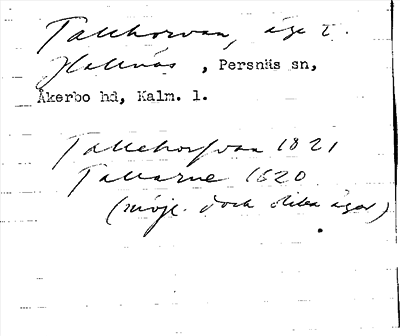 Tallhorvan, äga t.
Hallnäs, Persnäs sn,
Åkerbo hd, Kalm. l.
Tallehorfvan 1821
Tallarne 1620
(möjl. dock olika ägor)